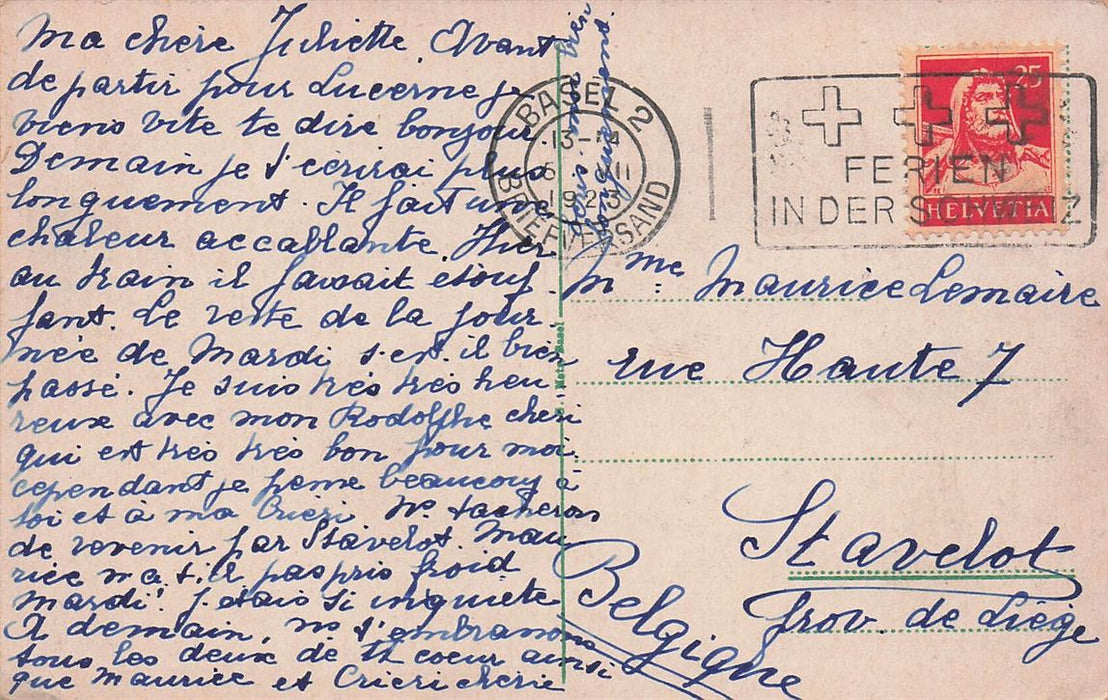 Ma chère Juliette Avant
de partir pour Lucerne je
viens vite te dire bonjour
Demain je t'écrirai plus
longuement. Il fait une
chaleur accablante. Hier
au train il faisait étouf-
fant. Le reste de la jour-
née de Mardi s'est il bien
passé. Je suis très très heu-
reuse avec mon Rodolphe chéri
qui est très très bon pour moi.
cependant je pense beaucoup à
toi et à ma Cricri Ns. tacherons
de revenir par Stavelot. Mau-
rice n'a t-il pas pris froid
mardi! J'étais si inquiète
A demain, ns t'embrassons
tous les deux de tt coeur ainsi
que Maurice et Cricri chérie
moi bien
longuement.
BASEL 2
13-14
1923
BRIEFVERSAND
FERIEN
IN DER SCHWEIZ
25
HELVETIA
Mme Maurice Lemaire
rue Haute 7
Stavelot
prov. de Liége
Belgique